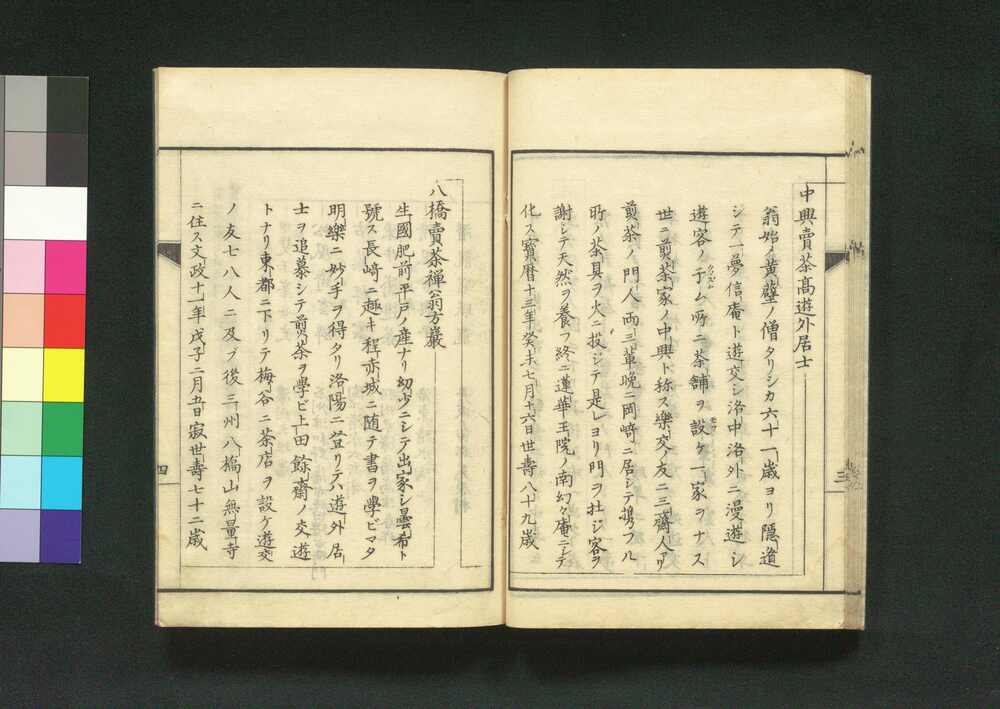 中興賣茶高遊外居士
翁始メ黄蘗ノ僧タリシカ六十一歳ヨリ隠遁
シテ一夢信庵ト遊交シ洛中洛外ニ漫遊シ
遊客ノ子ム所ニ茶舗ヲ設ケ一家ヲナス
世ニ煎茶家ノ中興ト称ス樂交ノ友ニ三齋人アリ
煎茶ノ門人両三輩晩ニ岡﨑ニ居シテ携フル
所ノ茶具ヲ火ニ投シテ是レヨリ門ヲ杜シ客ヲ
謝シテ天然ヲ養フ終ニ蓮華王院ノ南幻々庵ニシテ
化ス寳暦十三年癸未七月十六日世壽八十九歳
三
八橋賣茶禅翁方巖
生國肥前平戸ノ産ナリ幼少ニシテ出家シ曇希ト
號ス長﨑ニ趣キ程赤城ニ随テ書ヲ學ビマタ
明樂ニ妙手ヲ得タリ洛陽ニ登リテ六遊外居
士ヲ追慕シテ煎茶ヲ學ビ上田餘齋ノ交遊
トナリ東都ニ下リテ梅谷ニ茶店ヲ設ケ遊交
ノ友七八人ニ及ブ後三州八橋山無量寺
ニ住ス文政十一年戊子二月五日寂世壽七十二歳
四